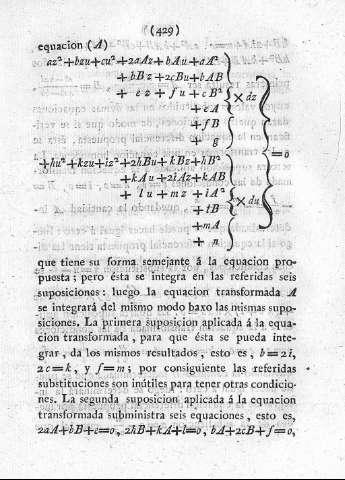 (429)
equacion (A)
az²+bzu+cu²+2aAz+bAu+aA²
+bBz+2cBu+bAB
+ez+fu+cB² ×dz
+eA
+fB
+g
=0
+hu²+kzu+iz²+2hBu+kBz+hB²
+kAu+2iAz+kAB
+lu+mz+iA² ×du
+lB
+mA
+n
que tiene su forma semejante á la equacion pro-
puesta; pero ésta se integra en las referidas seis
suposiciones: luego la equacion transformada A
se integrará del mismo modo baxo las mismas supo-
siciones. La primera suposicion aplicada á la equa-
cion transformada, para que ésta se pueda inte-
grar, da los mismos resultados, esto es, b=2i,
2c=k, y f=m; por consiguiente las referidas
substituciones son inútiles para tener otras condicio-
nes. La segunda suposicion aplicada á la equacion
transformada subministra seis equaciones, esto es,
2aA+bB+e=0, 2hB+kA+l=0, bA+2cB+f=0,